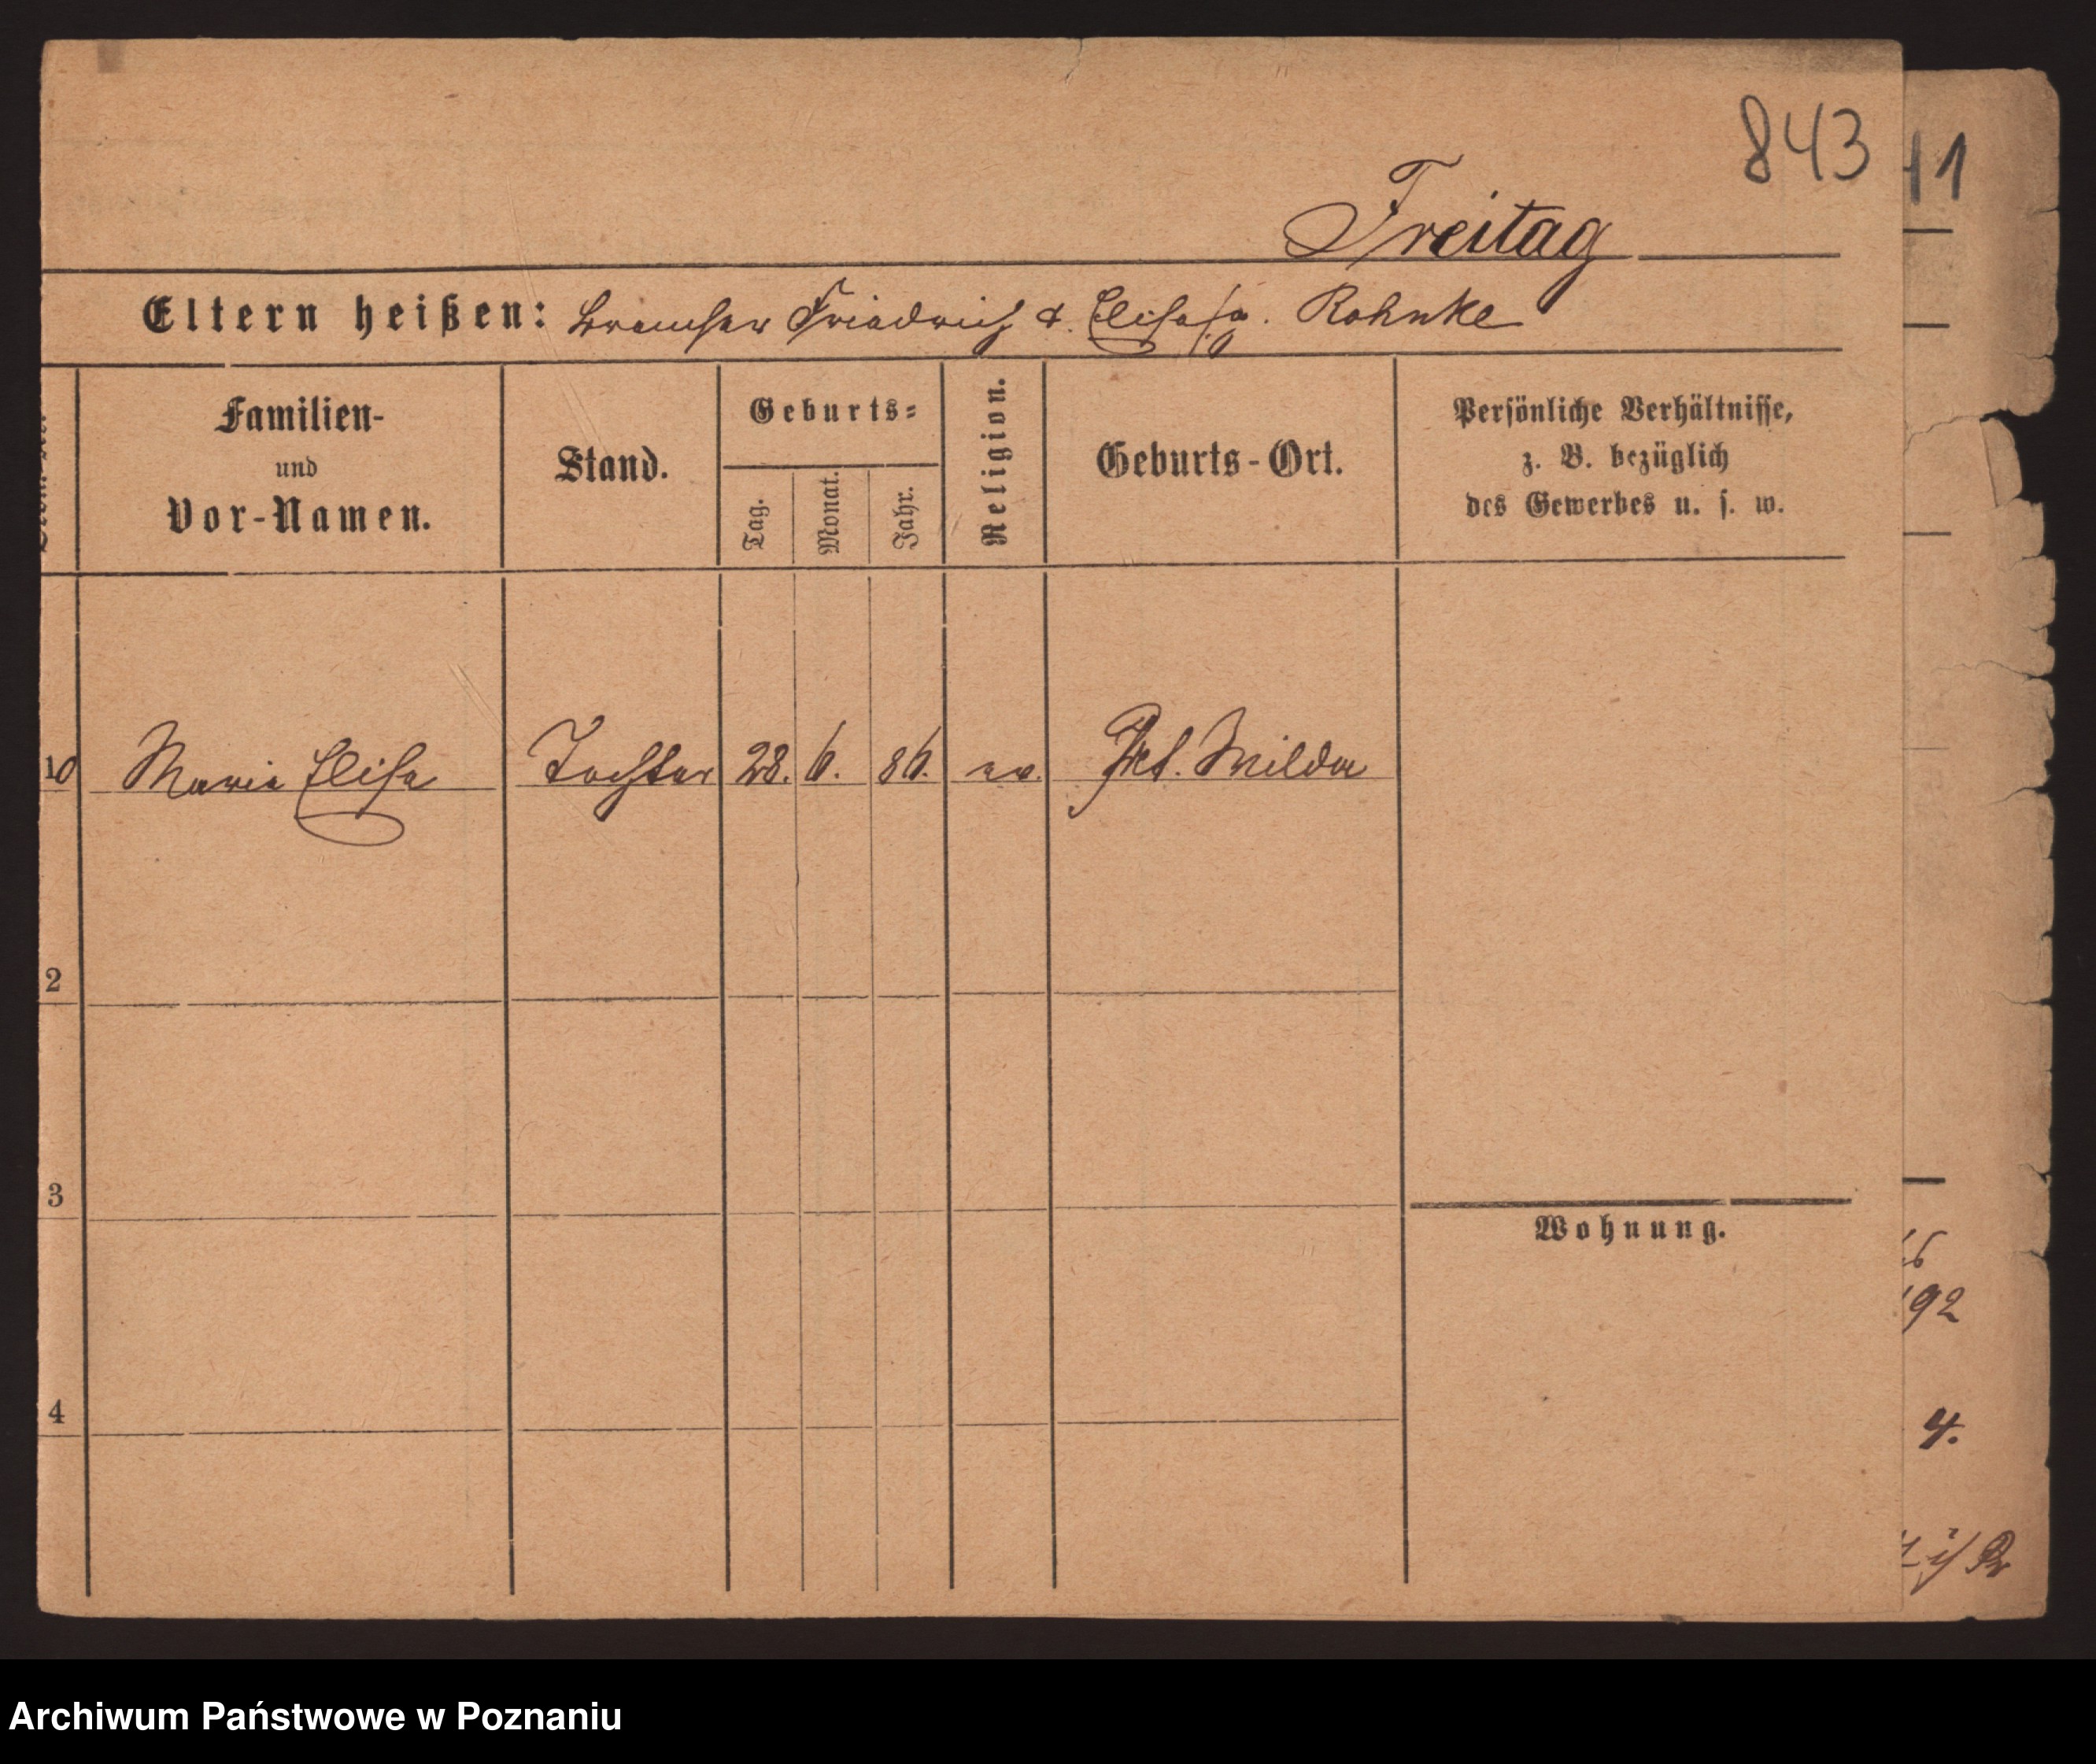 843
11
Freitag
Eltern heißen: Friedrich & Elisa Rohnke
Familien-
und
Vor-Namen.
Stand.
Geburts=
Tag.
Monat.
Jahr.
Religion.
Geburts-Ort.
Persönliche Verhältnisse,
z. B. bezüglich
des Gewerbes u. s. w.
10 Marie Elise Tochter 28. 6. 86. ev. Milda
2
3
Wohnung.
92
4
4.
Archiwum Państwowe w Poznaniu